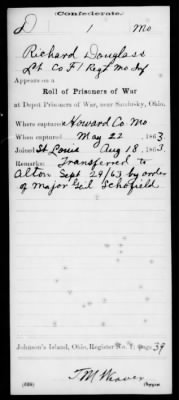 (Confederate.)
D 1 Mo
Richard Douglass
Lt Co F 1 Regt Mo Inf
Appears on a
Roll of Prisoners of War
at Depot Prisoners of War, near Sandusky, Ohio.
Where captured Howard Co Mo
When captured May 22, 1863
Joined St Louis Aug 18, 1863.
Remarks: Transferred to
Alton Sept 29/63 by order
of Major Genl Schofield
Johnson's Island, Ohio, Register No. 1; page 39
J M Weaver
(639) Copyist.